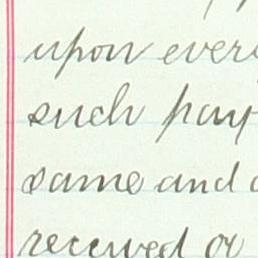 upon every
such pay
same and
received or